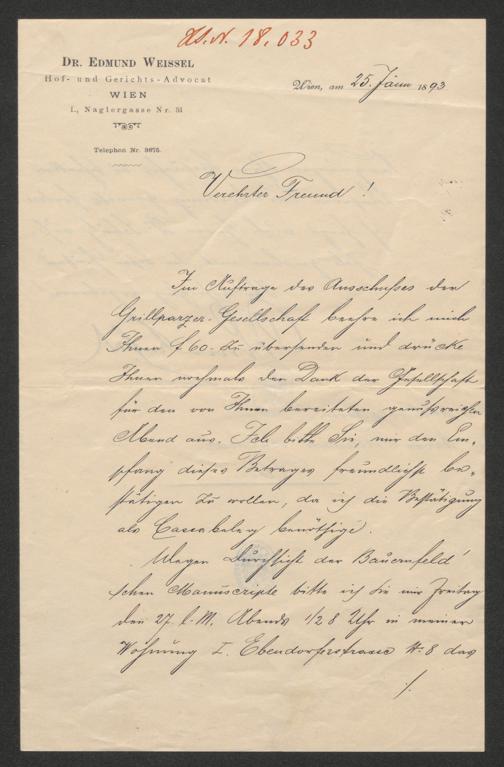 H.I.N. 18.033
DR. EDMUND WEISSEL
Hof- und Gerichts-Advocat
WIEN
I., Naglergasse Nr. 31
Telephon Nr. 3675.
Wien, am 25. Jänn 1893
Verehrter Freund!
Im Auftrage des Ausschußes der
Grillparzer-Gesellschaft beehre ich mich
Ihnen f 60.- zu übersenden und drücke
Ihnen nochmals den Dank der Gesellschaft
für den von Ihnen bereiteten genußreichen
Abend aus. Ich bitte Sie, mir den Em-
pfang dieses Betrages freundlichst be-
stätigen zu wollen, da ich die Bestätigung
als Cassabeleg benöthige.
Wegen Durchsicht der Bauernfeld'
schen Manuscripte bitte ich Sie mir Freitag
den 27. l. M. Abends 1/2 8 Uhr in meiner
Wohnung I. Ebendorferstrasse No 8 das
/.